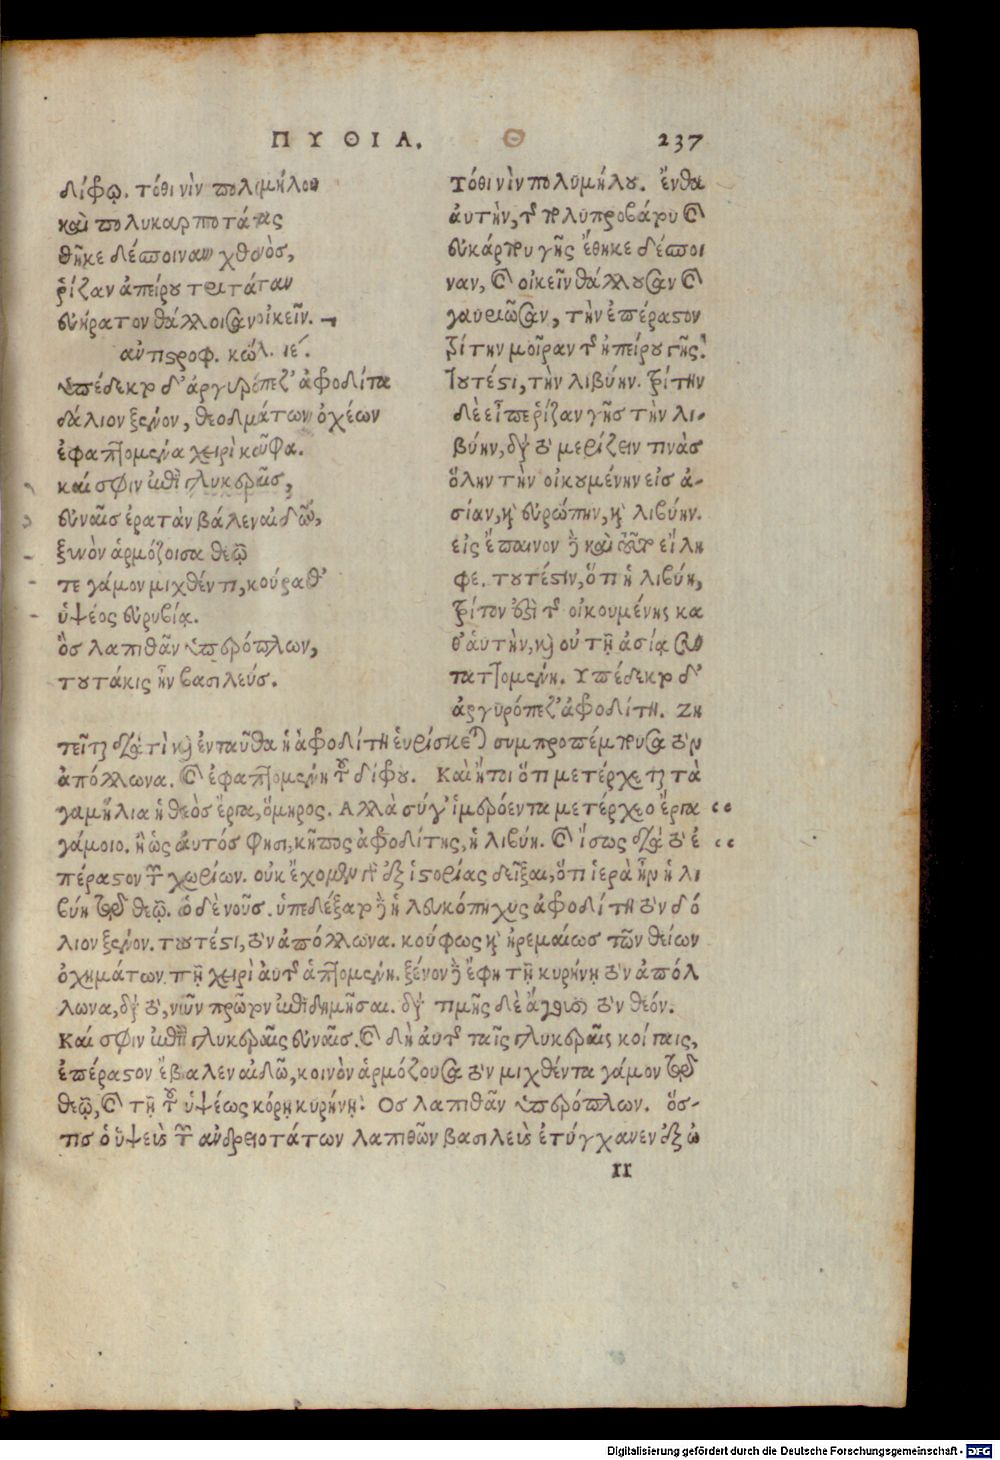 ΠΥΘΙΑ. Θ 237
δίφῳ. τόθι νὶν πολυμήλου
καὶ πολυκαρποτάτας
θῆκε δέσποιναν χθονὸς,
ῥίζαν ἀπείρου τριτάταν
εὐήρατον θάλλοισαν οἰκεῖν.
ἀντιστροφ. κώλ. ιέ.
ὑπέδεκτο δ᾽ ἀργυρόπεζ᾽ ἀφροδίτα
δάλιον ξένον, θεοδμάτων ὀχέων
ἐφαπτομένα χειρὶ κούφα.
καί σφιν ἐπὶ γλυκεραῖς,
εὐναῖς ἐρατὰν βάλεν αἰδῶ,
ξυνὸν ἁρμόζοισα θεῷ
τε γάμον μιχθέντι, κούρα θ᾽
ὑψέος εὐρυβία.
ὃς λαπιθᾶν ὑπερόπλων,
τουτάκις ἦν βασιλεύς.
Τόθι νὶν πολυμήλου. ἔνθα
αὐτὴν, τῆς πολυπροβάτου καὶ
εὐκάρπου γῆς ἔθηκε δέσποι
ναν, καὶ οἰκεῖν θάλλουσαν καὶ
γαυριῶσαν, τὴν ἐπέραστον
τρίτην μοῖραν τῆς ἠπείρου γῆς.
Τουτέστι, τὴν λιβύην. τρίτην
δὲ εἶπε ῥίζαν γῆς τὴν λι-
βύην, διὰ τὸ μερίζειν τινὰς
ὅλην τὴν οἰκουμένην εἰς ἀ-
σίαν, καὶ εὐρώπην, καὶ λιβύην.
εἰς ἔπαινον δὲ καὶ τοῦτο εἴλη
φε. τουτέστιν, ὅτι ἡ λιβύη,
τρίτον ἐστὶ τῆς οἰκουμένης κα
θ᾽ αὑτὴν, καὶ οὐ τῇ ἀσίᾳ συν
ταττομένη. Υπέδεκτο δ᾽
ἀργυρόπεζ᾽ ἀφροδίτη. Ζη
τεῖται διὰ τί καὶ ἐνταῦθα ἡ ἀφροδίτη εὑρίσκεται συμπροπέμπουσα τὸν
ἀπόλλωνα. καὶ ἐφαπτομένη τοῦ δίφρου. Καὶ ἤτοι ὅτι μετέρχεται τὰ
γαμήλια ἡ θεὸς ἔργα, ὅμηρος. Αλλὰ σύ γ᾽ ἱμερόεντα μετέρχεο ἔργα
γάμοιο. ἢ ὡς αὐτός φησι, κῆπος ἀφροδίτης, ἡ λιβύη. καὶ ἴσως διὰ τὸ ἐ
πέραστον τῶν χωρίων. οὐκ ἔχομεν γὰρ ἐξ ἱστορίας δεῖξαι, ὅτι ἱερὰ ἦν ἡ λι
βύη τῇ θεῷ. ὁ δὲ νοῦς. ὑπεδέξατο δὲ ἡ λευκόπηχυς ἀφροδίτη τὸν δά
λιον ξένον. τουτέστι, τὸν ἀπόλλωνα. κούφως καὶ ἠρεμαίως τῶν θείων
ὀχημάτων τῇ χειρὶ αὐτοῦ ἁπτομένη. ξένον δὲ ἔφη τῇ κυρήνῃ τὸν ἀπόλ
λωνα, διὰ τὸ, νῦν πρῶτον ἐπιδημῆσαι. διὰ τιμῆς δὲ ἄγουσι τὸν θεόν.
Καί σφιν ἐπὶ γλυκεραῖς εὐναῖς. καὶ δὴ αὐτοῖς ταῖς γλυκεραῖς κοίταις,
ἐπέραστον ἔβαλεν αἰδῶ, κοινὸν ἁρμόζουσα τὸν μιχθέντα γάμον τῷ
θεῷ, καὶ τῇ τοῦ ὑψέως κόρῃ κυρήνῃ. Ος λαπιθᾶν ὑπερόπλων. ὅσ-
τις ὁ ὑψεὺς τῶν ἀνδρειοτάτων λαπιθῶν βασιλεὺς ἐτύγχανεν ἐξ ὠ
II
Digitalisierung gefördert durch die Deutsche Forschungsgemeinschaft - DFG